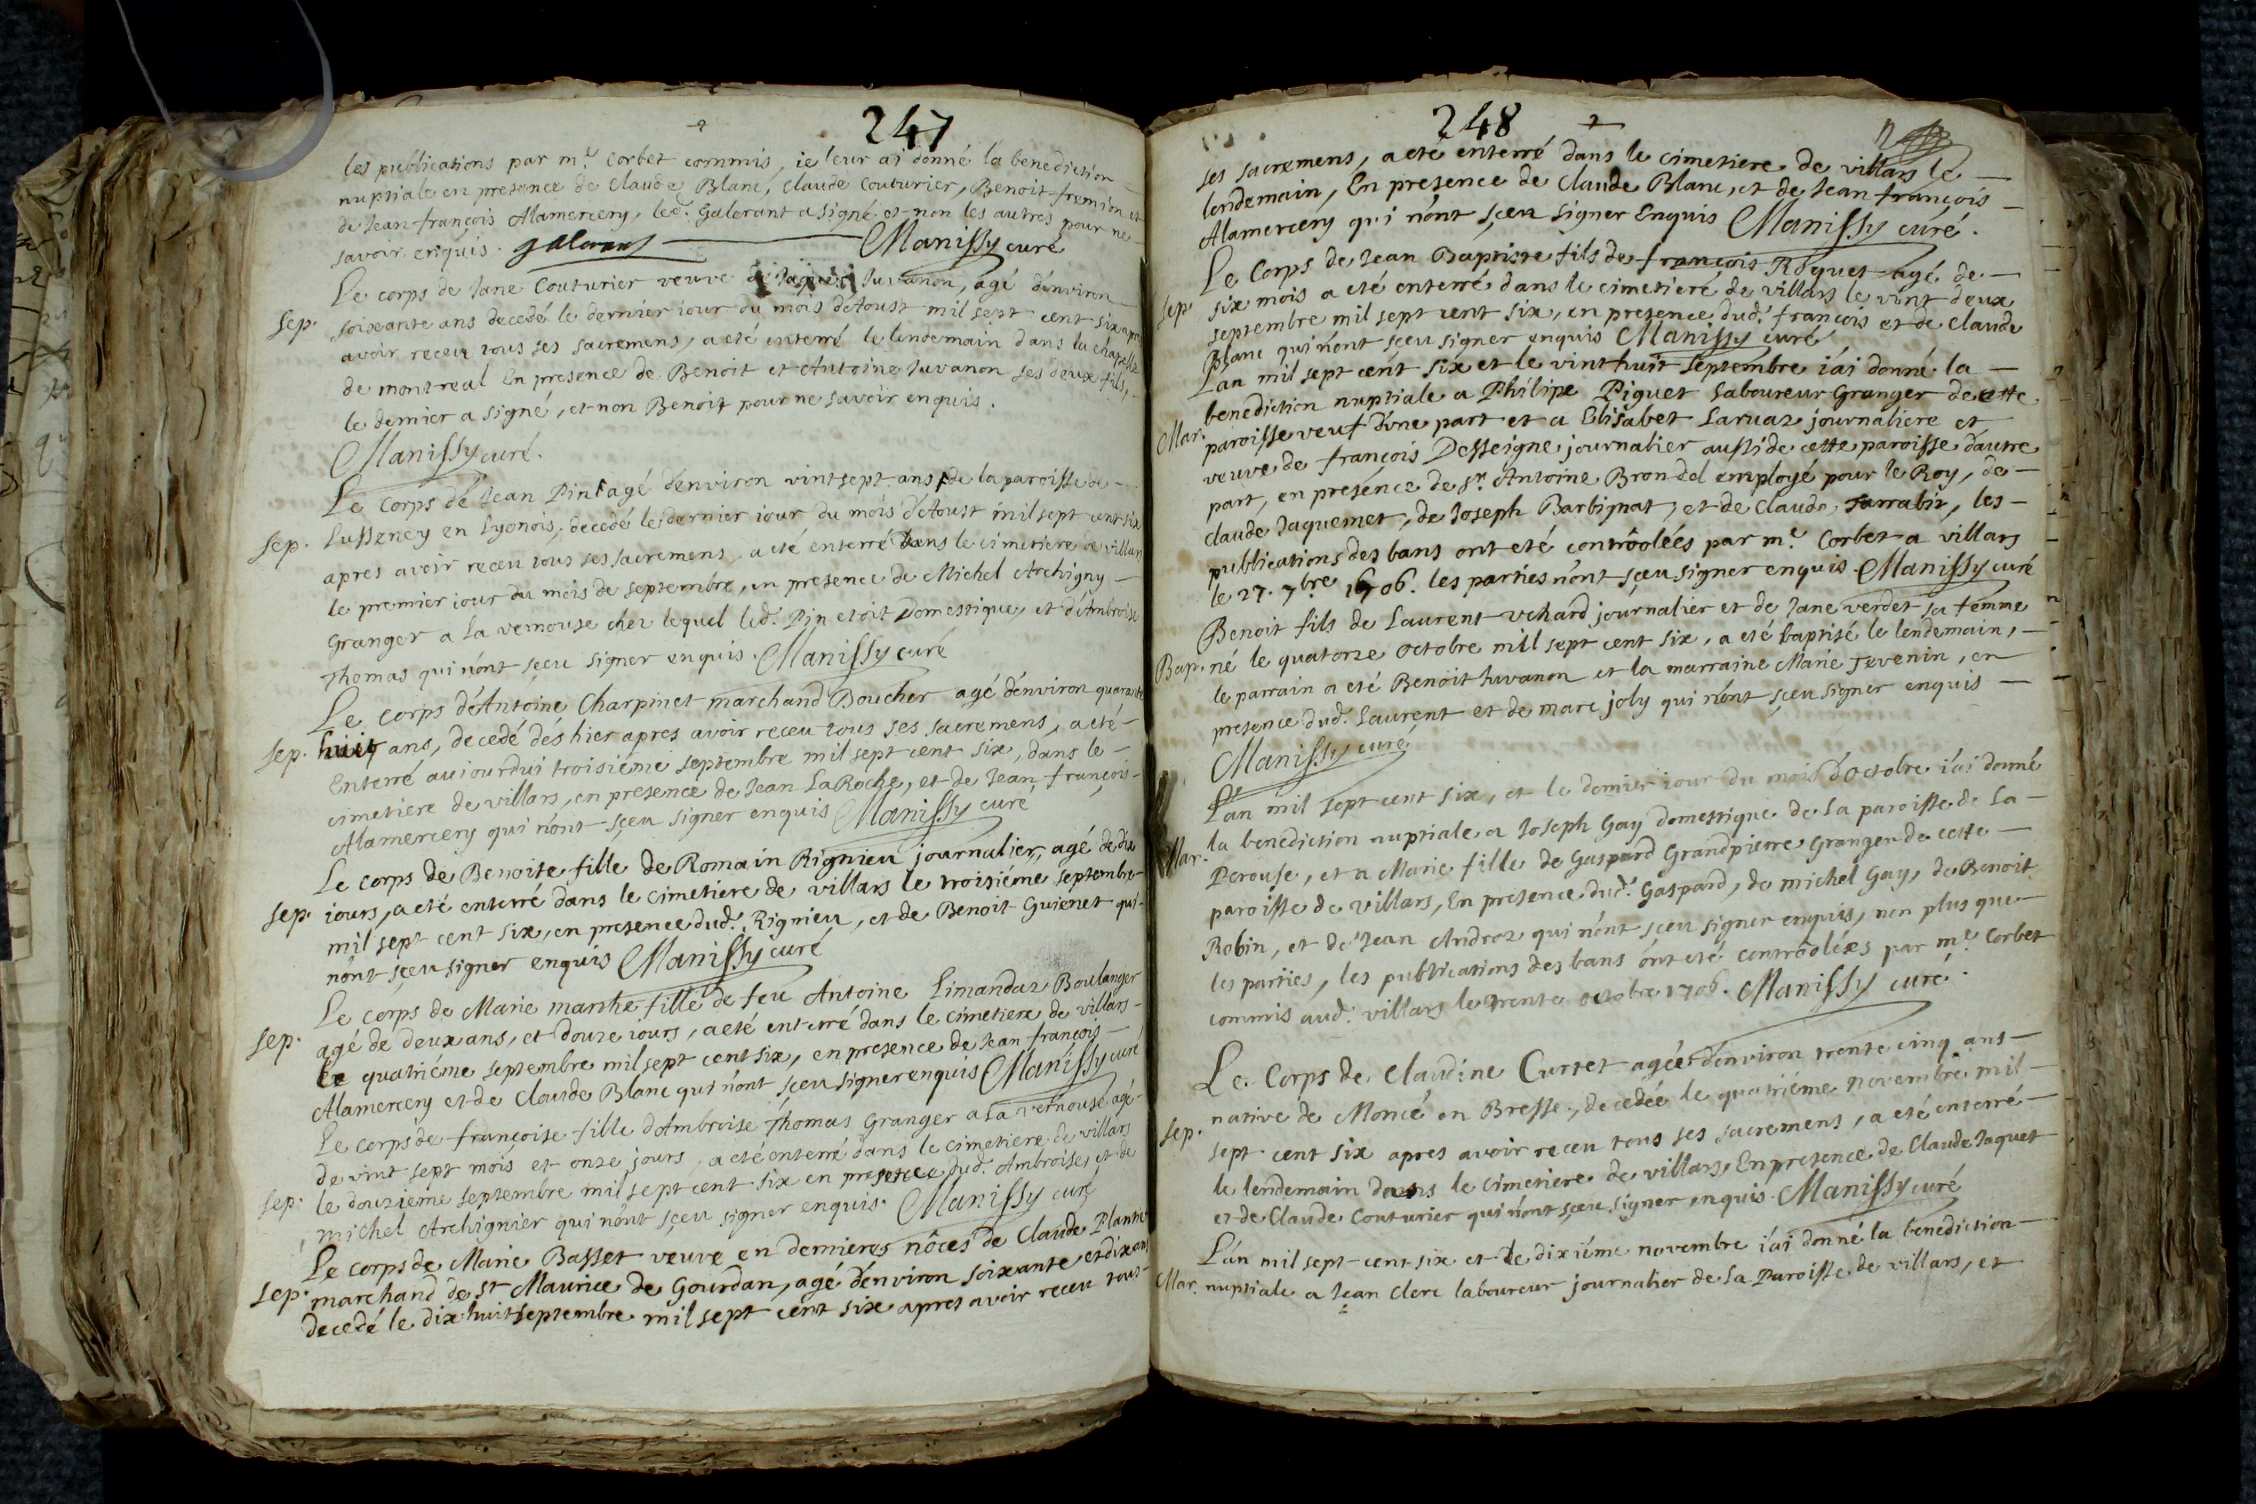 247
les publications par m.e Corbet commis, ie leur ai donné la benediction
nuptiale en presence de Claude Blanc, Claude Couturier, Benoit fremion et
de Jean françois Alamercery, led. Galerant a signé et non les autres pour ne
savoir enquis. galerant Manissy curé
Le corps de Jane Couturier veuve de Juvanon, agé d'environ
sep. soixante ans decedé le dernier iour du mois d'Aoust mil sept cent six apres
avoir receu tous ses sacremens, a eté enterré le lendemain dans la chapelle
de montreal En presence de Benoit et Antoine Juvanon ses deux fils,
le dernier a signé, et non Benoit pour ne savoir enquis.
Manissy curé.
Le Corps de Jean Pin agé d'environ vint sept ans de la paroisse de
sep. en Lyonois, decedé le dernier iour du mois d'Aoust mil sept cent six
apres avoir receu tous ses sacremens, a eté enterré dans le cimetiere de villars
le premier iour du mois de septembre, en presence de Michel Archigny
Granger a La vernouse chez lequel led. Pin etoit Domestique, et d'Ambroise
Thomas qui n'ont sçeu signer enquis. Manissy curé
Le Corps d'Antoine Charpinet marchand Boucher agé d'environ quarante
sep. huit ans, decedé dés hier apres avoir receu tous ses sacremens, a eté
Enterré auiourdui troisiéme septembre mil sept cent six, dans le
cimetiere de villars, en presence de Jean LaRoche, et de Jean françois
Alamercery qui n'ont sçeu signer enquis Manissy curé
Le corps de Benoite fille de Romain Rignieu journalier, agé de dix
sep. iours, a eté enterré dans le cimetiere de villars le troisiéme septembre
mil sept cent six, en presence dud. Rignieu, et de Benoit Guienet qui
n'ont sçeu signer enquis Manissy curé
Le corps de Marie marthe fille de feu Antoine Limandaz Boulanger
sep. agé de deux ans, et douze iours, a eté enterré dans le cimetiere de villars
le quatriéme septembre mil sept cent six, en presence de Jean françois
Alamercery et de Claude Blanc qui n'ont sçeu signer enquis Manissy curé
Le corps de françoise fille d'Ambroise Thomas Granger a La vernouse agé
de vint sept mois et onze jours, a eté enterré dans le cimetiere de villars
sep. le douziéme septembre mil sept cent six en presence dud. Ambroise, et de
michel Archignier qui n'ont sçeu signer enquis. Manissy curé
Le corps de Marie Basset veuve en dernieres nôces de Claude
sep. marchand de st Maurice de Gourdan, agé d'environ soixante et dix ans
decedé le dix huit septembre mil sept cent six apres avoir receu tous
248
ses sacremens, a eté enterré dans le cimetiere de villars le
lendemain, En presence de Claude Blanc, et de Jean françois
Alamercery qui n'ont sçeu signer Enquis Manissy curé.
Le Corps de Jean Baptiste fils de françois Roquet agé de
sep six mois a eté enterré dans le cimetiere de villars le vint deux
septembre mil sept cent six, en presence dud. françois et de Claude
Blanc qui n'ont sçeu signer enquis Manissy curé
L'an mil sept cent six et le vint huit septembre i'ai donné la
benediction nuptiale a Philipe Piquet Laboureur Granger de cette
Mar. paroisse veuf d'une part et a Elisabet Laruaz journaliere et
veuve de françois Desseigne journalier aussi de cette paroisse d'autre
part, en presence de sr. Antoine Brondel employé pour le Roy, de
claude Jaquemet, de Joseph Barbignat, et de Claude Farrabit, les
publications des bans ont eté contrôolées par m.e Corbet a villars
le 27. 7bre 1706. les parties n'ont sçeu signer enquis. Manissy curé
Benoit fils de Laurent vehard journalier et de Jane verdet sa femme
Bap. né le quatorze octobre mil sept cent six, a eté baptisé le lendemain,
le parrain a eté Benoit Juvanon et la marraine Marie Tevenin, en
presence dud. Laurent et de marc joly qui n'ont sçeu signer enquis
Manissy curé
L'an mil sept cent six, et le dernier iour du mois d'octobre i'ai donné
Mar. la benediction nuptiale a Joseph Gay domestique de la paroisse de La
Perouse, et a Marie fille de Gaspard Grandpierre Granger de cette
paroisse de villars, En presence dud. Gaspard, de michel Gay, de Benoit
Robin, et de Jean Androz qui n'ont sçeu signer enquis, non plus que
les parties, les publications des bans ont eté contrôolées par m.e Corbet
commis aud. villars le trente octobre 1706. Manissy curé.
Le Corps de Claudine Curtet agée d'environ trente cinq ans
native de Moncé en Bresse, decedée le quatriéme novembre mil
sep. sept cent six apres avoir receu tous ses sacremens, a eté enterré
le lendemain dans le cimetiere de villars, En presence de Claude Jaquet
et de Claude Couturier qui n'ont sçeu signer enquis. Manissy curé
L'an mil sept cent six et le dixiéme novembre i'ai donné la benediction
Mar. nuptiale a Jean Clerc laboureur journalier de La Paroisse de villars, et